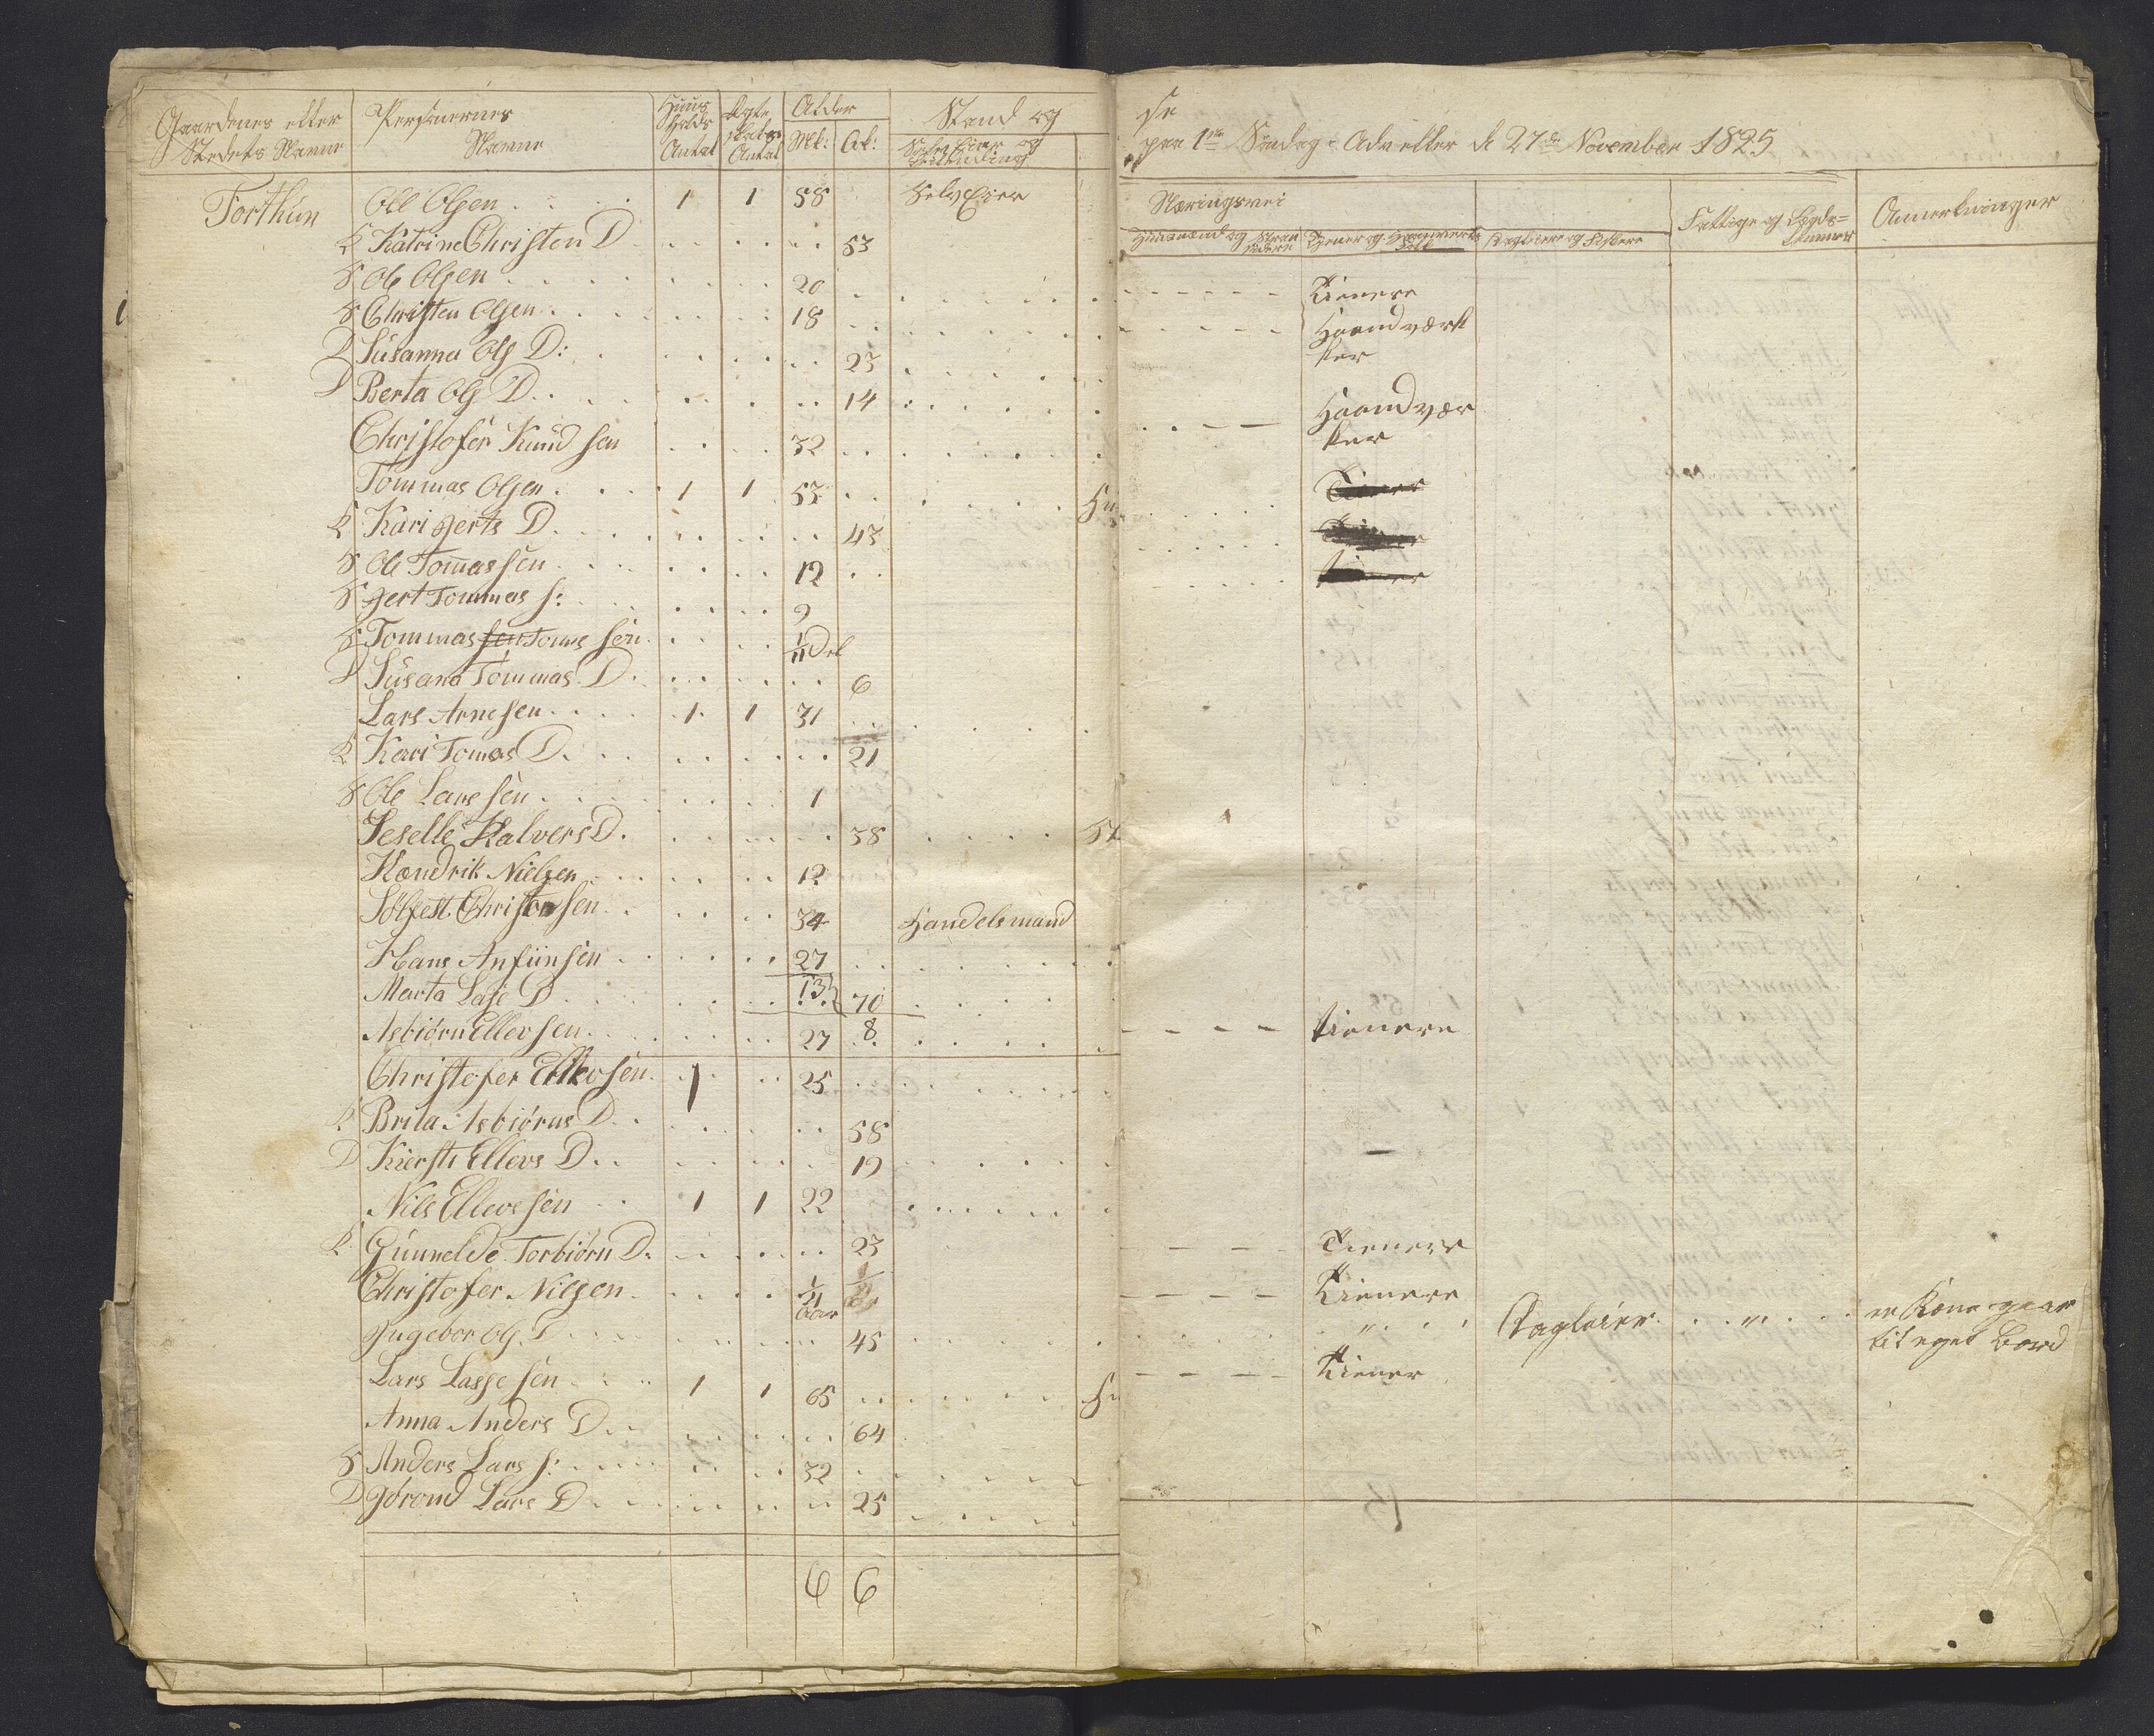 Gaardenes eller Stedets Navne | Personernes Navne | Huus holds Antal | Ægte skabs Antal | Alder Mk: Qk: | Stand og
Forthun | Ole Olsen | 1 | 1 | 58 | SelvEier
K Katrine Christen D | 53
S Ole Olsen | 20
S Christen Olsen | 18
D Susanna Ols D: | 23
D Berta Ols D | 14
Christofer Knud sen | 32
Tommas Olsen | 1 | 1 | 53
K Kari Gerts D | 43
S Ole Tomassen | 12
S Gert Tommas s: | 9
S Tommas sen Toms sen | 1/11 Del
D Susana Tommas D | 6
Lars Arnesen | 1 | 1 | 31
K Kari Tomas D | 21
S Ole Larssen | 1
Seselle Halvers D | 38
Hændrik Nielsen | 12
Sølfest Christensen | 34 | Handelsmand
Hans Anfiinsen | 27
Marta Lasse D | 13 | 70
Asbiørn Ellevsen | 27 | 8
Christofer Ellevsen | 1 | 25
K Brita Asbiørns D | 58
D Kiersti Ellevs D | 19
Nils Ellevssen | 1 | 1 | 22
K Gunnelde Torbiørn D: | 23
Christofer Nilsen
Aar
Ingebor Ols D | 45
Lars Lassesen | 1 | 1 | 65
Anna Anders D | 64
S Anders Lars s: | 32
D Gørond Lars D | 25
6 6
paa 1ste Søndag i Adventter d 27de November 1825
Næringsvei
Huusmænd og | Tiener og Haandværks | Dagleiere og Fiskere | Fattige og Lægds= Lemmer | Anmerkninger
Tienere
Haandværk
ker
Haandvær
ker
Tiener
Tiener
Tiener
tienere
Tienere
Tienere
" | Dagleier | " | en Kone paa
sit eget Bord
tiener